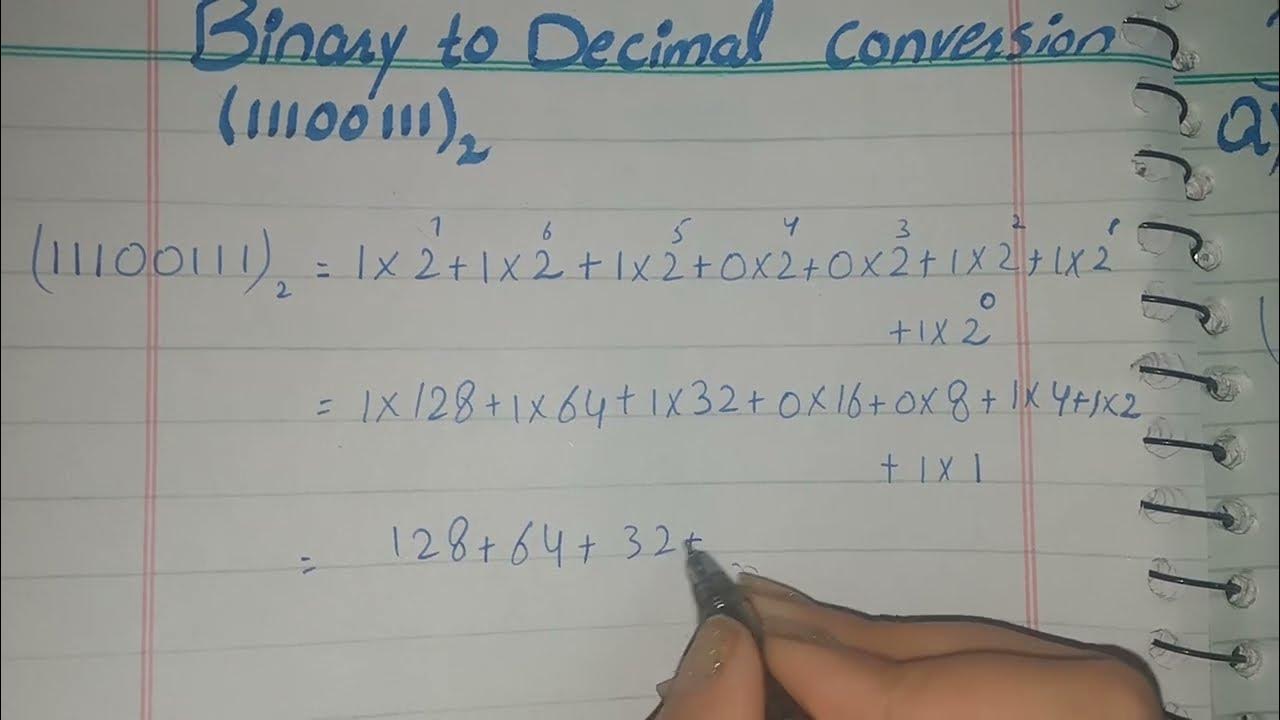 Binary to Decimal Conversion
(11100111)₂
a)
(11100111)₂ = 1×2⁷+1×2⁶+1×2⁵+0×2⁴+0×2³+1×2²+1×2¹
+1×2⁰
= 1×128+1×64+1×32+0×16+0×8+1×4+1×2
+1×1
= 128+64+32+